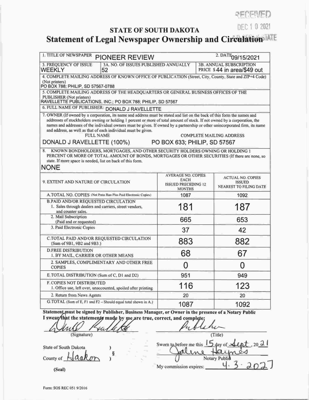 RECEIVED
DEC 1 0 2021
STATE OF SOUTH DAKOTA
Statement of Legal Newspaper Ownership and Circulation
1. TITLE OF NEWSPAPER PIONEER REVIEW
2. DATE 09/15/2021
3. FREQUENCY OF ISSUE WEEKLY
3A. NO. OF ISSUES PUBLISHED ANNUALLY 52
3B. ANNUAL SUBSCRIPTION PRICE $ 44 in area/$49 out
4. COMPLETE MAILING ADDRESS OF KNOWN OFFICE OF PUBLICATION (Street, City, County, State and ZIP+4 Code) (Not printers)
PO BOX 788; PHILIP, SD 57567-0788
5. COMPLETE MAILING ADDRESS OF THE HEADQUARTERS OR GENERAL BUSINESS OFFICES OF THE PUBLISHER (Not printers)
RAVELLETTE PUBLICATIONS, INC.; PO BOX 788; PHILIP, SD 57567
6. FULL NAME OF PUBLISHER: DONALD J RAVELLETTE
7. OWNER (If owned by a corporation, its name and address must be stated and list on the back of this form the names and
addresses of stockholders owning or holding 1 percent or more of total amount of stock. If not owned by a corporation, the
names and addresses of the individual owners must be given. If owned by a partnership or other unincorporated firm, its name
and address, as well as that of each individual must be given.
FULL NAME COMPLETE MAILING ADDRESS
DONALD J RAVELLETTE (100%) PO BOX 863; PHILIP, SD 57567
8. KNOWN BONDHOLDERS, MORTGAGES, AND OTHER SECURITY HOLDERS OWNING OR HOLDING 1
PERCENT OR MORE OF TOTAL AMOUNT OF BONDS, MORTGAGES OR OTHER SECURITIES (If there are none, so
state. If more space is needed, list on back of this form.
NONE
9. EXTENT AND NATURE OF CIRCULATION
AVERAGE NO. COPIES EACH ISSUED PRECEDING 12 MONTHS
ACTUAL NO. COPIES ISSUED NEAREST TO FILING DATE
A. TOTAL NO. COPIES 1087 1092
B. PAID AND/OR REQUESTED CIRCULATION
1. Sales through dealers and carriers, street vendors, and counter sales. 181 187
2. Mail Subscription (Paid and or requested) 665 653
3. Paid Electronic Copies 37 42
C. TOTAL PAID AND/OR REQUESTED CIRCULATION (Sum of 9B1, 9B2 and 9B3) 883 882
D. FREE DISTRIBUTION
1. BY MAIL, CARRIER OR OTHER MEANS 68 67
2. SAMPLES, COMPLIMENTARY AND OTHER FREE COPIES 0 0
E. TOTAL DISTRIBUTION (Sum of C, D1 and D2) 951 949
F. COPIES NOT DISTRIBUTED
1. Office use, left over, unaccounted, spoiled after printing 116 123
2. Return from News Agents 20 20
G. TOTAL (Sum of E, F1 and F2 - Should equal total shown in A.) 1087 1092
Statement must be signed by Publisher, Business Manager, or Owner in the presence of a Notary Public
I swear that the statements made by me are true, correct, and complete:
Publisher
(Signature) (Title)
State of South Dakota )
County of Haakon )
§
Sworn to before me this 15 day of Sept, 2021
Jolene Haynes
Notary Public
(Seal)
My commission expires: 4-3-2027
Form: SOS REC 051 9/2016